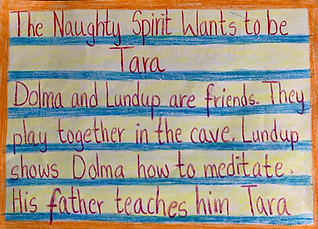 The Naughty Spirit Wants to be
Tara
Dolma and Lundup are friends. They
play together in the cave. Lundup
shows Dolma how to meditate.
His father teaches him Tara